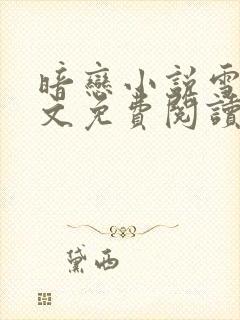 暗戀小說雪
文免費閱讀
黛西